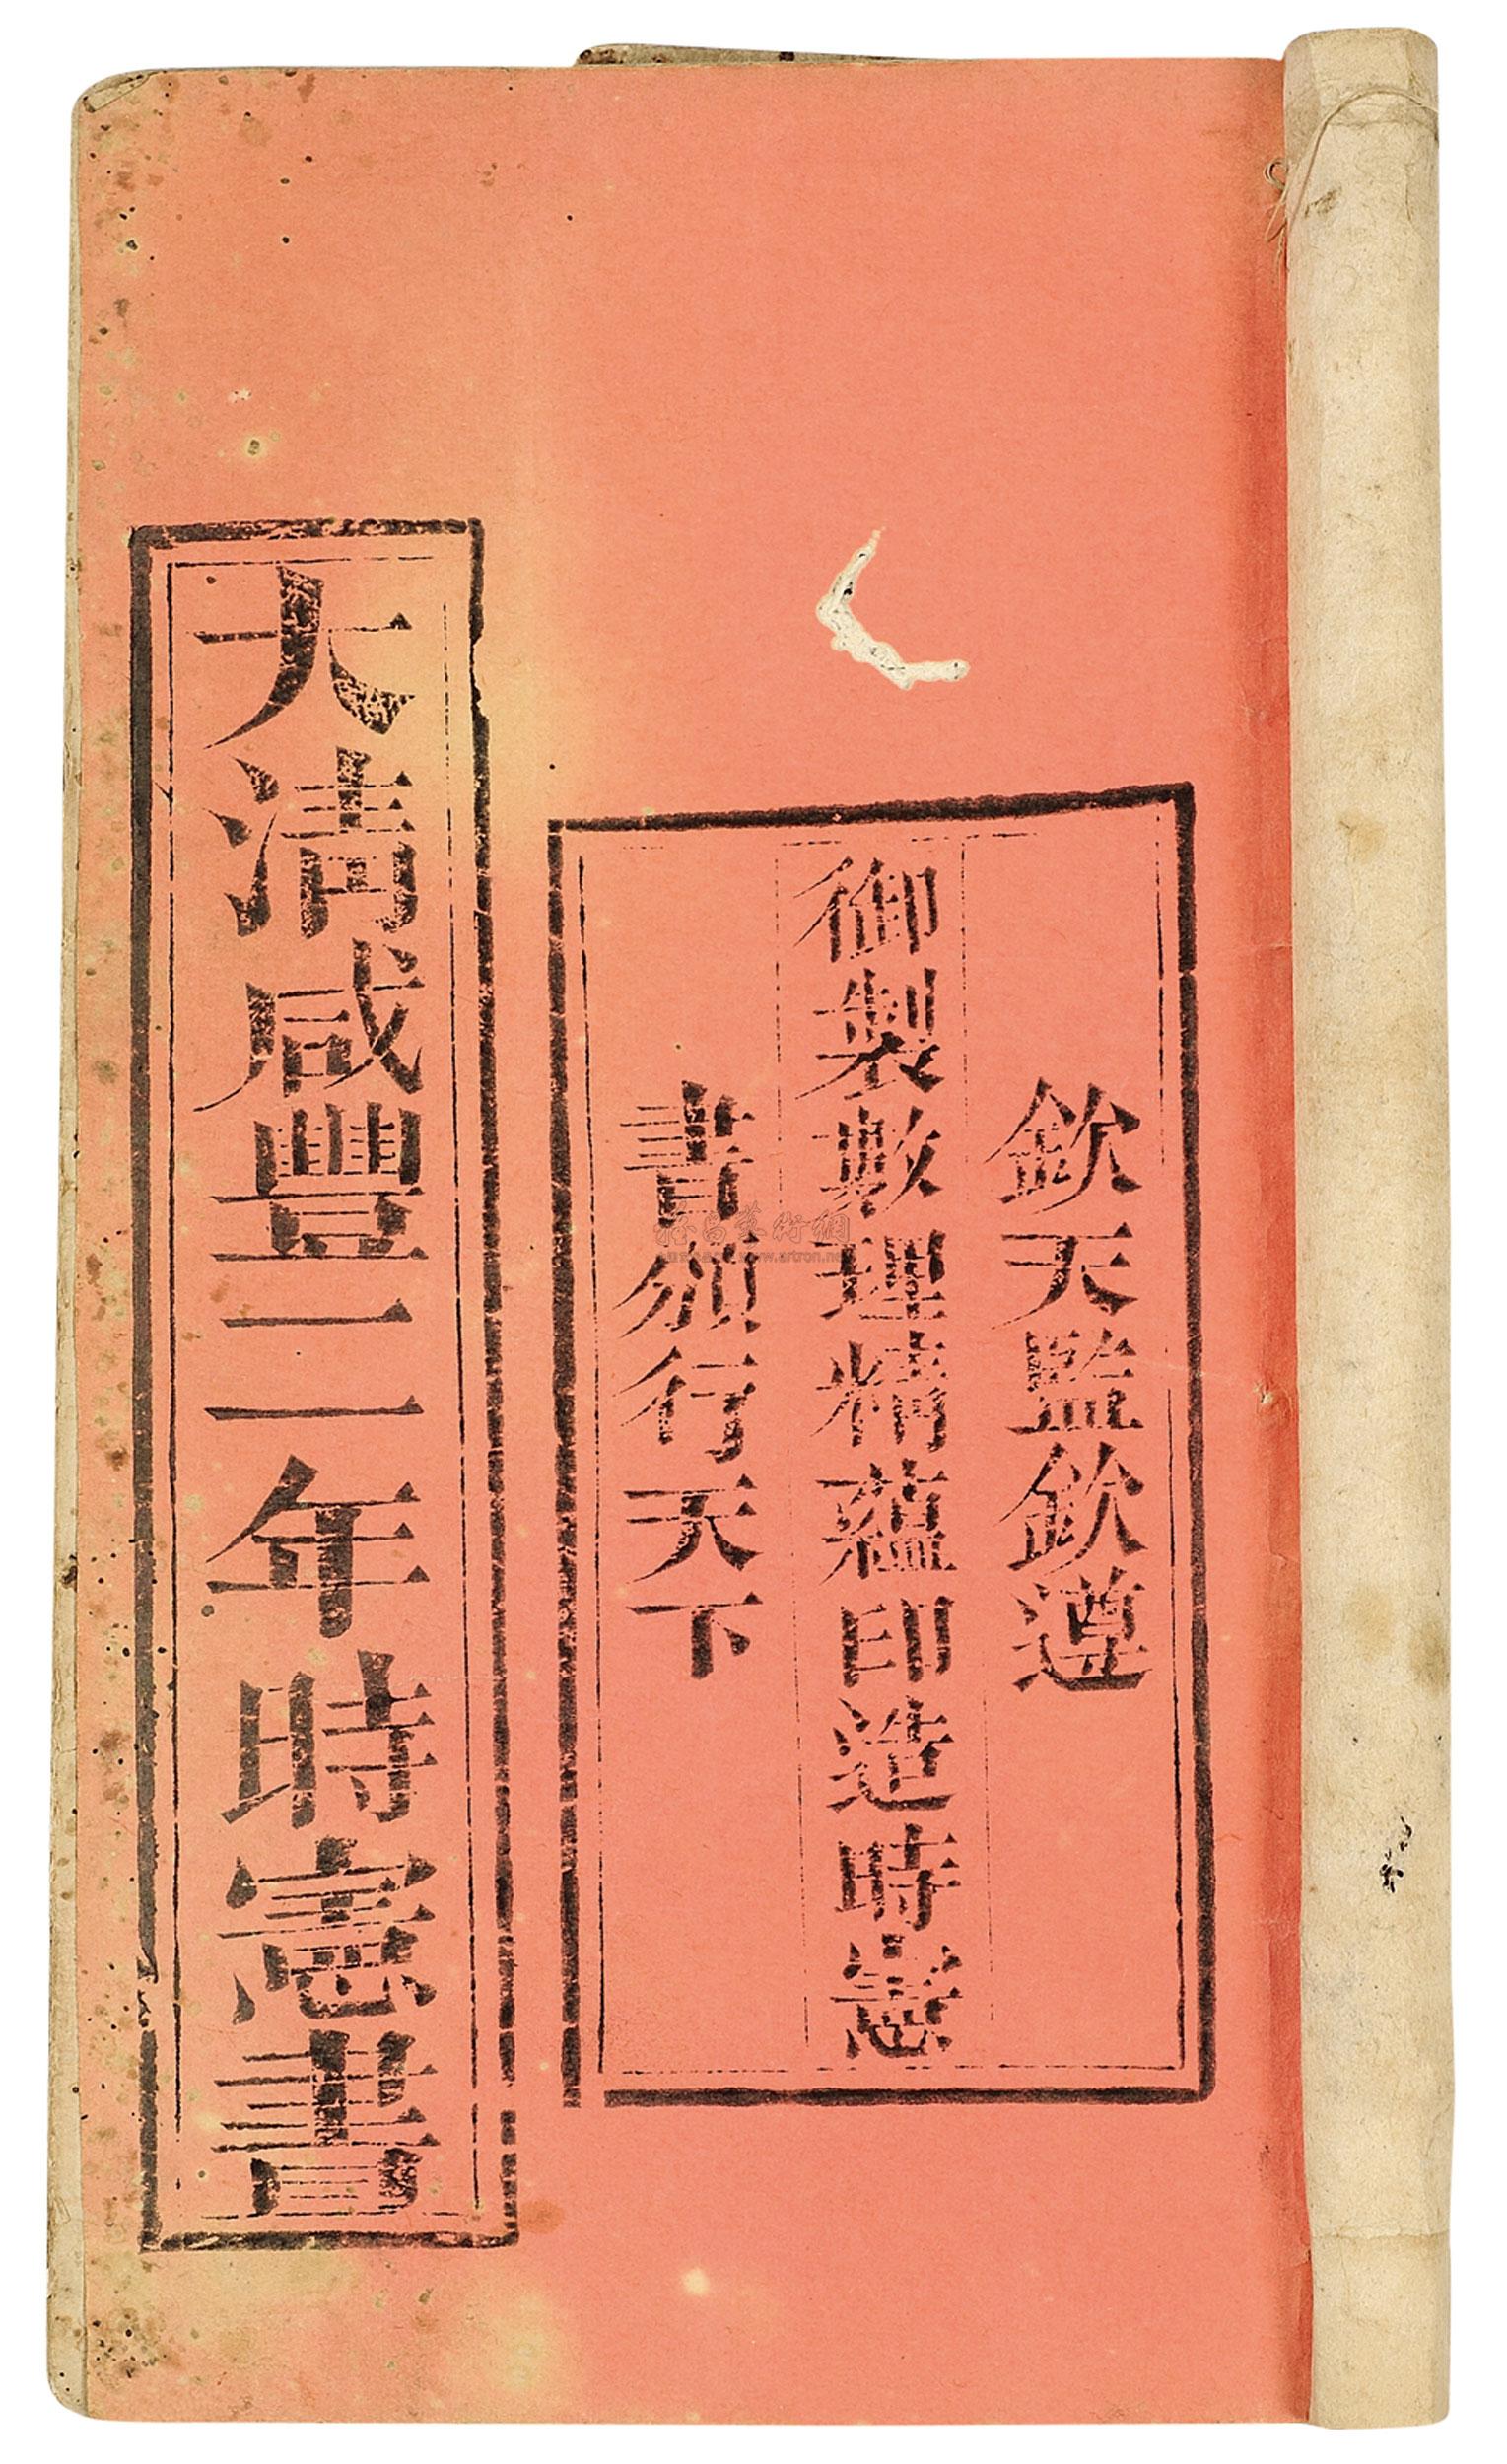 欽天監欽遵
御製數理精蘊印造時憲
書頒行天下
大清咸豐二年時憲書
雅昌藝術網
www.artron.net